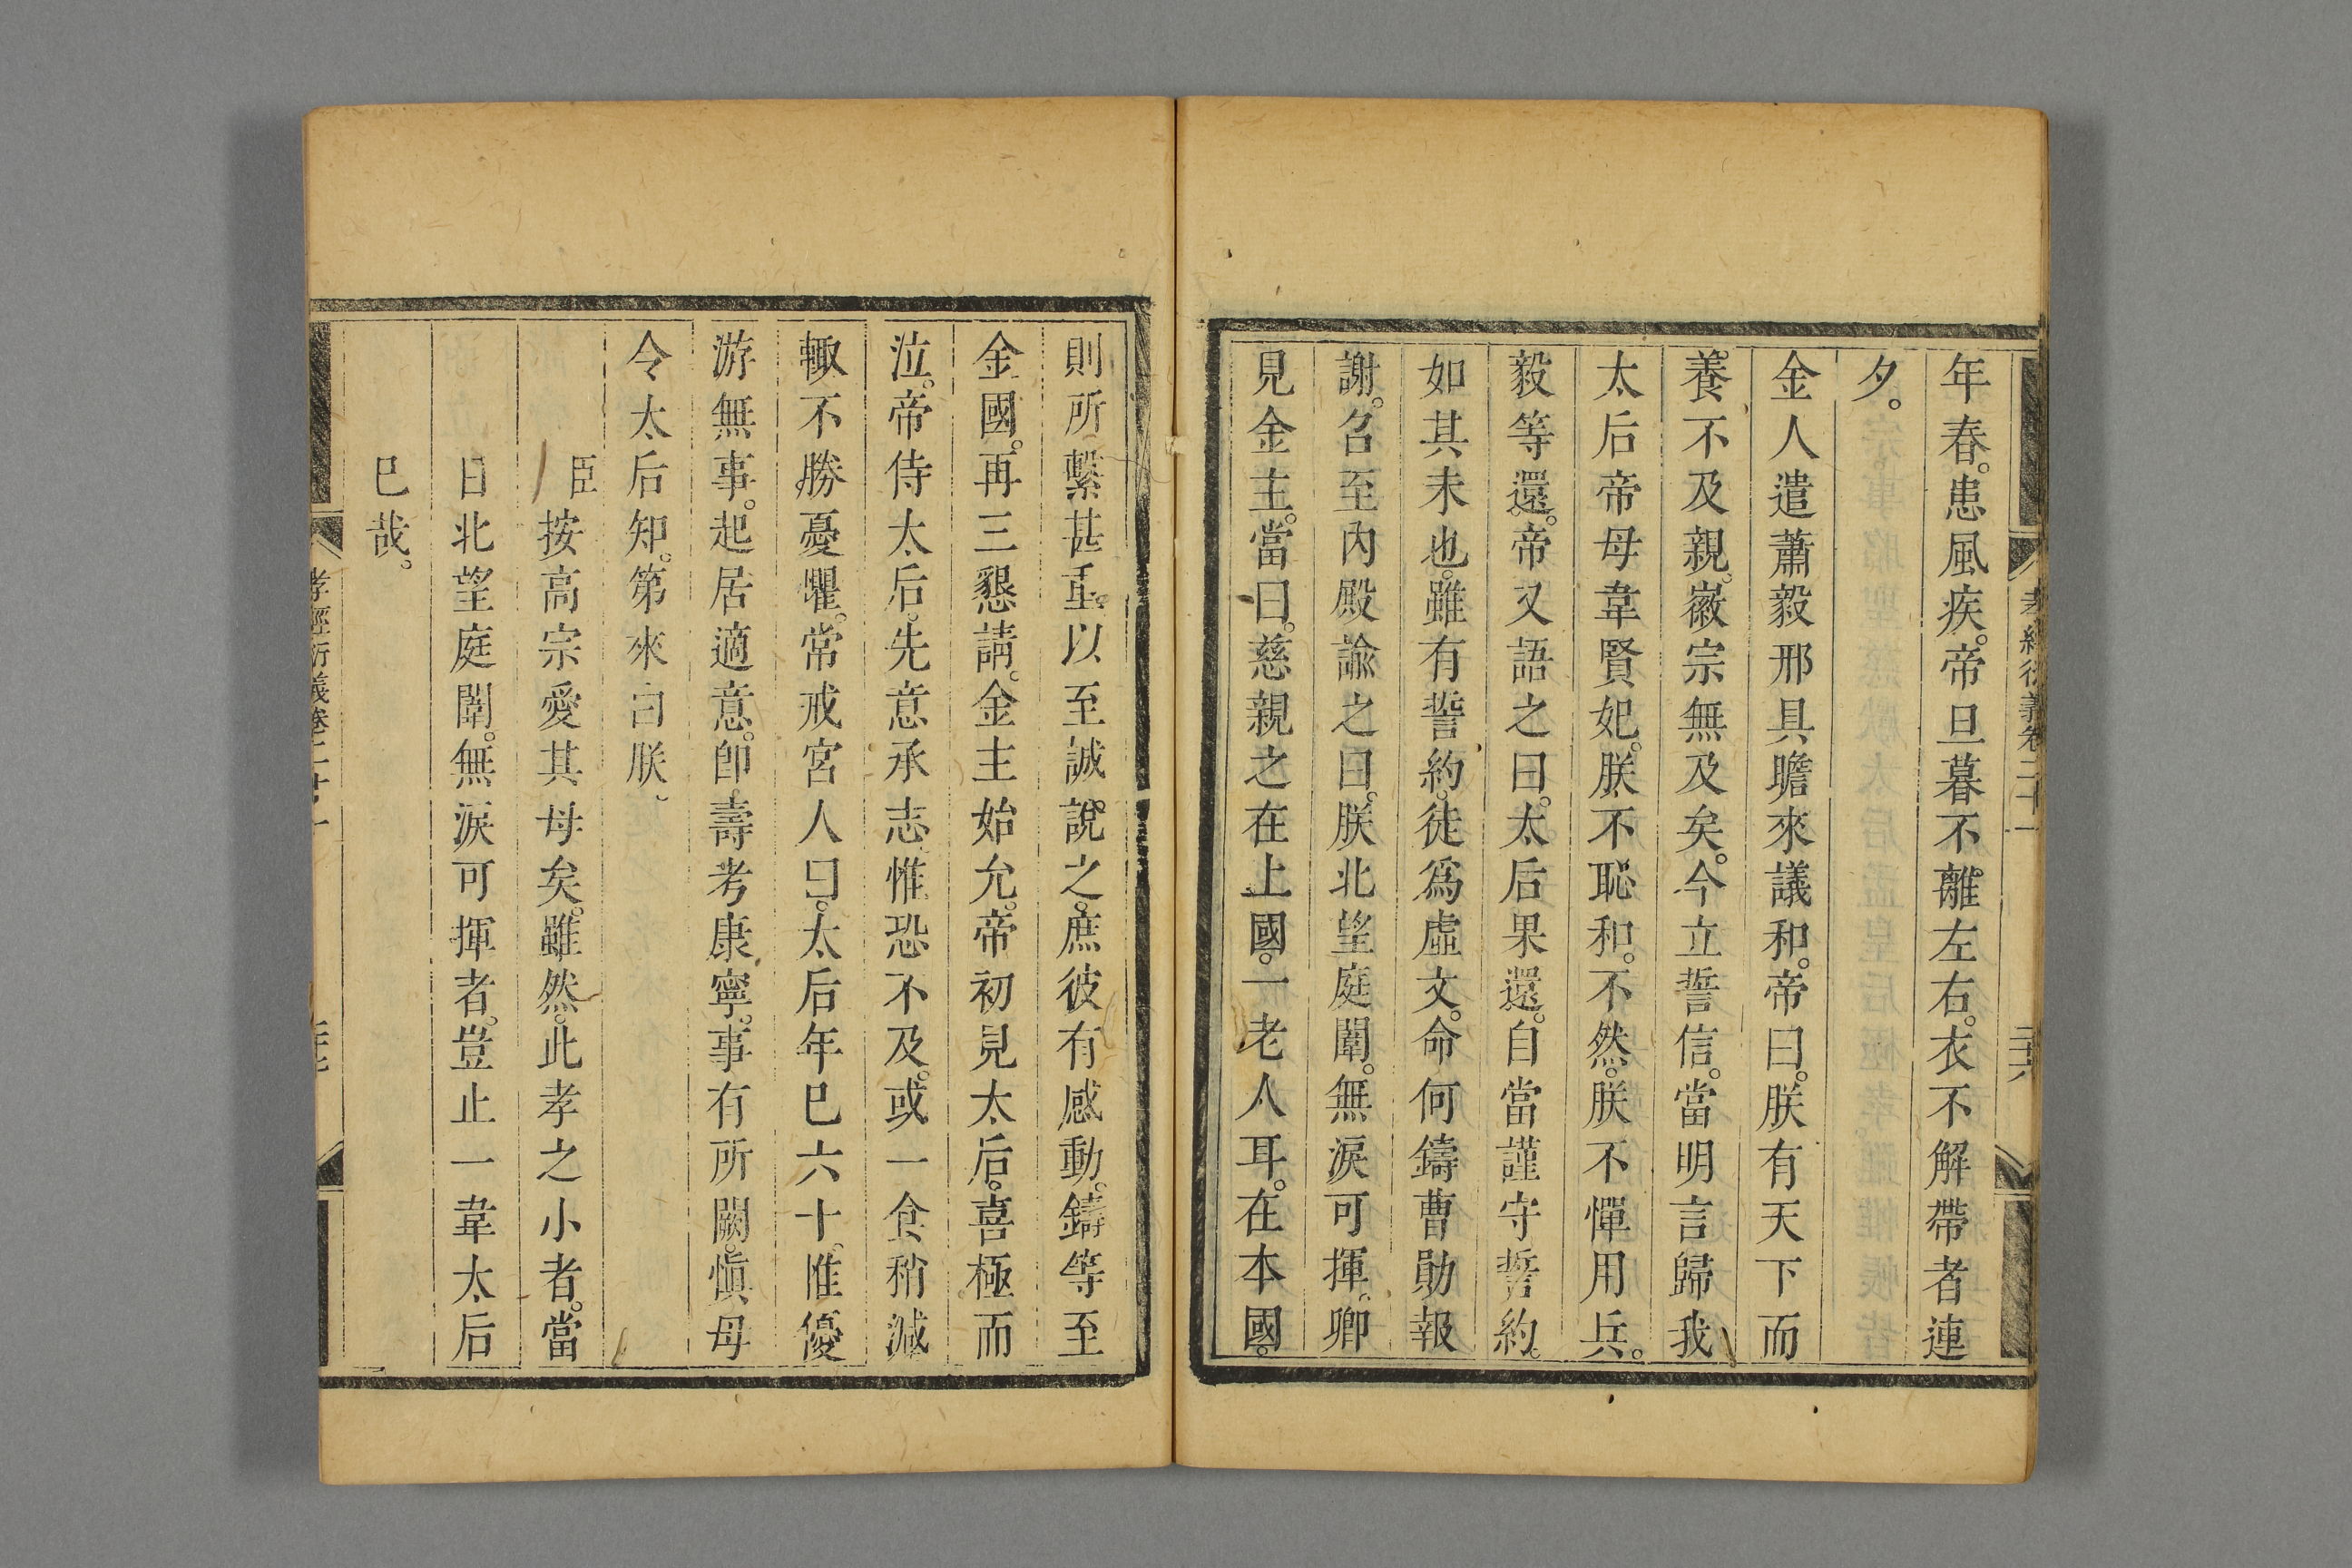 年春。患風疾。帝旦暮不離左右。衣不解帶者連
夕。
金人遣蕭毅邢具瞻來議和。帝曰。朕有天下而
養不及親。徽宗無及矣。今立誓信。當明言歸我
太后帝母韋賢妃。朕不恥和。不然。朕不憚用兵。
毅等還。帝又語之曰。太后果還。自當謹守誓約。
如其未也。雖有誓約。徒爲虛文。命何鑄曹勛報
謝。召至內殿諭之曰。朕北望庭闈。無淚可揮。卿
見金主。當曰。慈親之在上國。一老人耳。在本國。
則所繫甚重。以至誠說之。庶彼有感動。鑄等至
金國。再三懇請。金主始允。帝初見太后。喜極而
泣。帝侍太后。先意承志。惟恐不及。或一食稍減。
輒不勝憂懼。常戒宮人曰。太后年已六十。惟優
游無事。起居適意。卽壽考康寧。事有所闕。愼毋
令太后知。第來白朕。
臣按高宗愛其母矣。雖然。此孝之小者。當
日北望庭闈。無淚可揮者。豈止一韋太后
已哉。
孝經衍義卷二十一